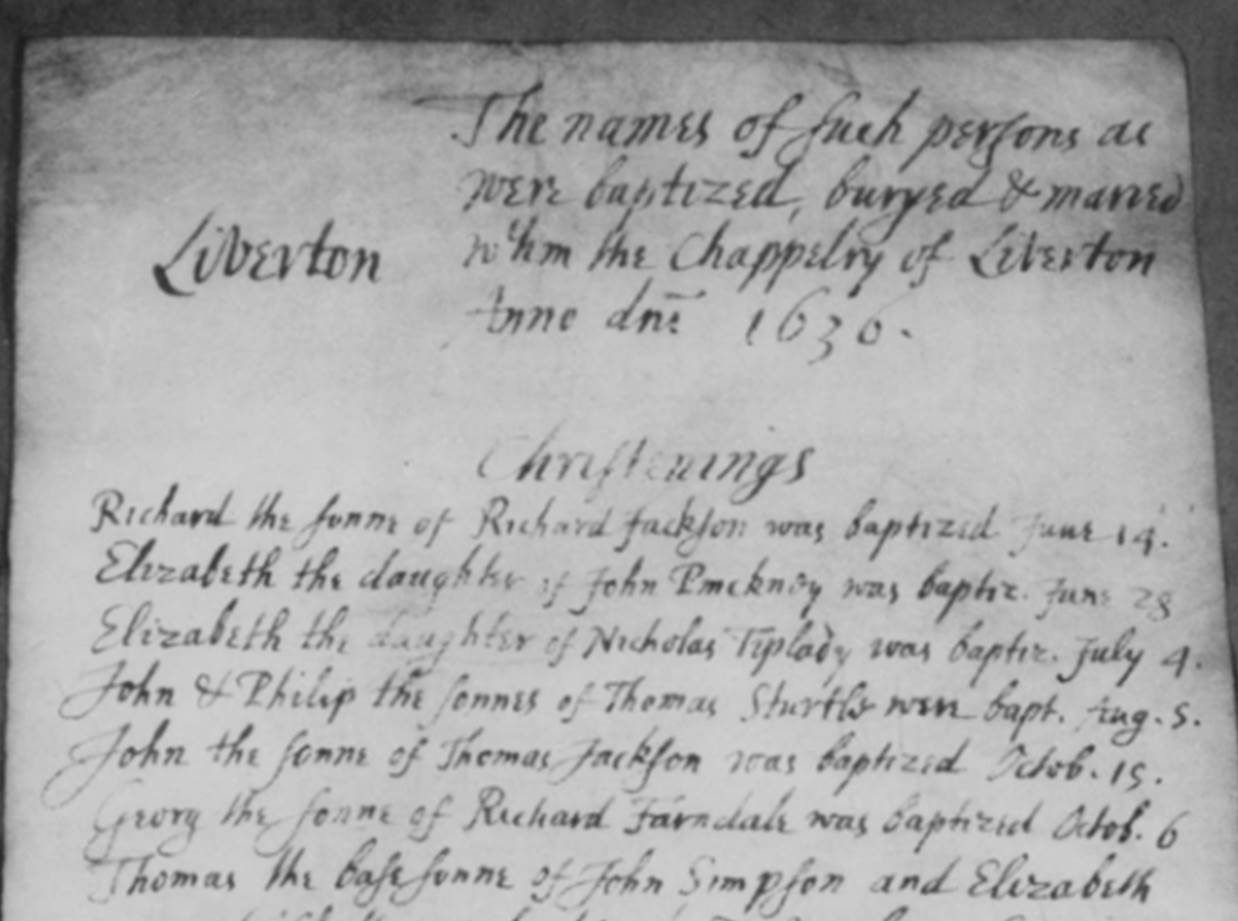 The names of such persons as
were baptized, buryed & maried
Liverton
wthin the Chappelry of Liverton
Anno dni 1636.
Christenings
Richard the sonne of Richard Jackson was baptized June 14.
Elizabeth the daughter of John Pinckney was baptiz. June 28
Elizabeth the daughter of Nicholas Tiplady was baptiz. July 4.
John & Philip the sonnes of Thomas were bapt. Aug. 5.
John the sonne of Thomas Jackson was baptized Octob. 15.
Georg the sonne of Richard Farndale was baptized Octob. 6
Thomas the base sonne of John Simpson and Elizabeth